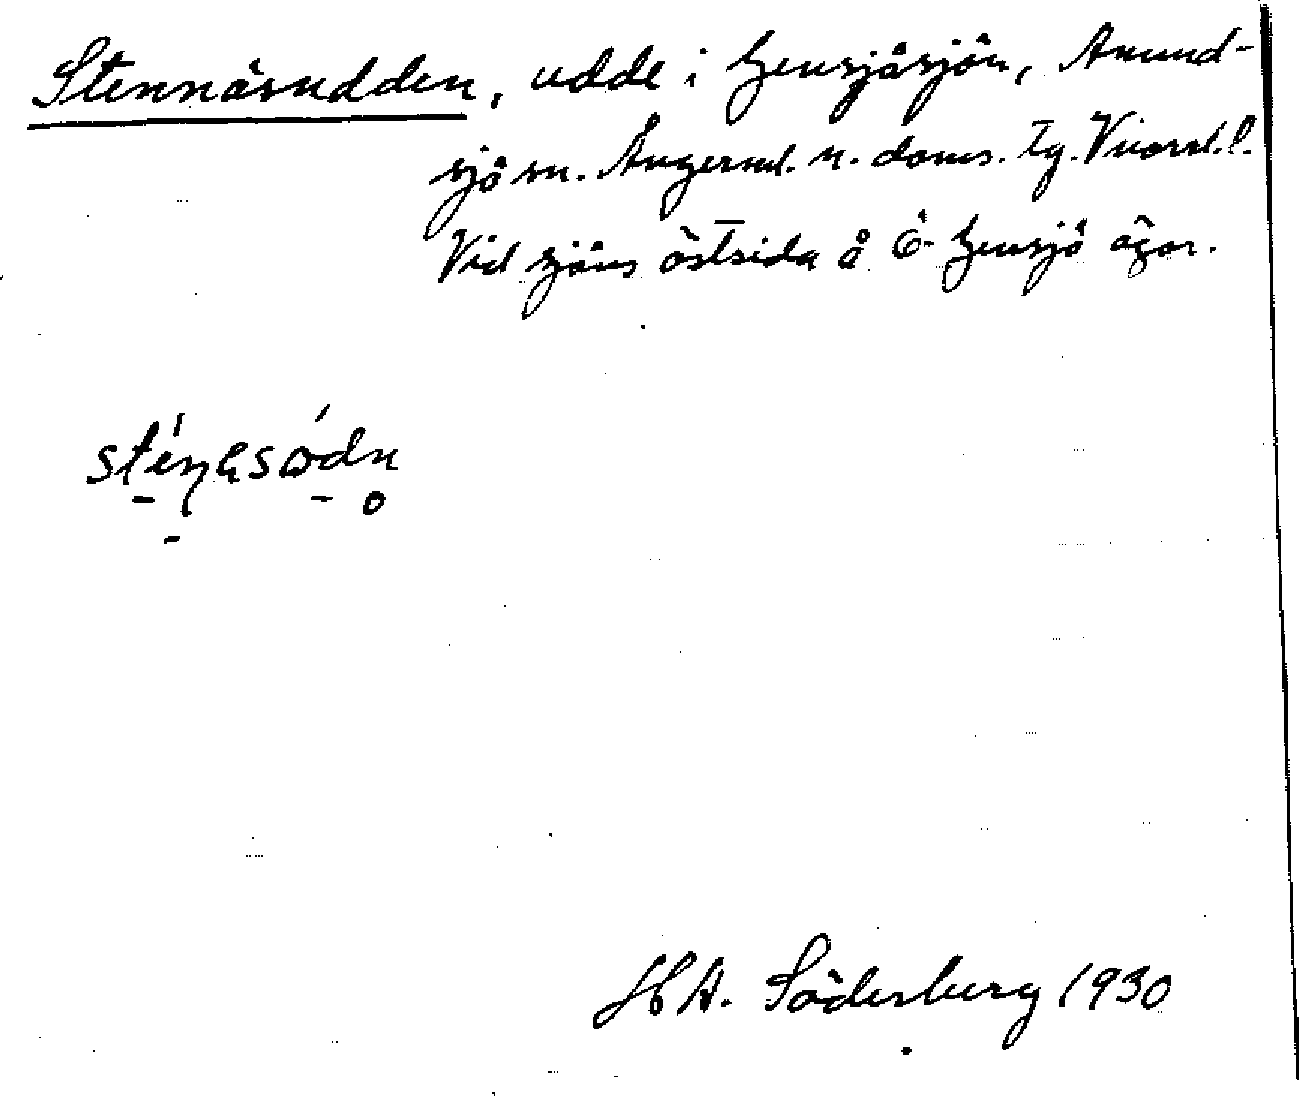 Stennäsudden, udde i Gensjösjön, Anund-
sjö sn. Ångerml. n. doms. tg. Vnorrl. l.
Vid sjöns östsida å Ö. Gensjö ägor.
HA. Söderberg 1930